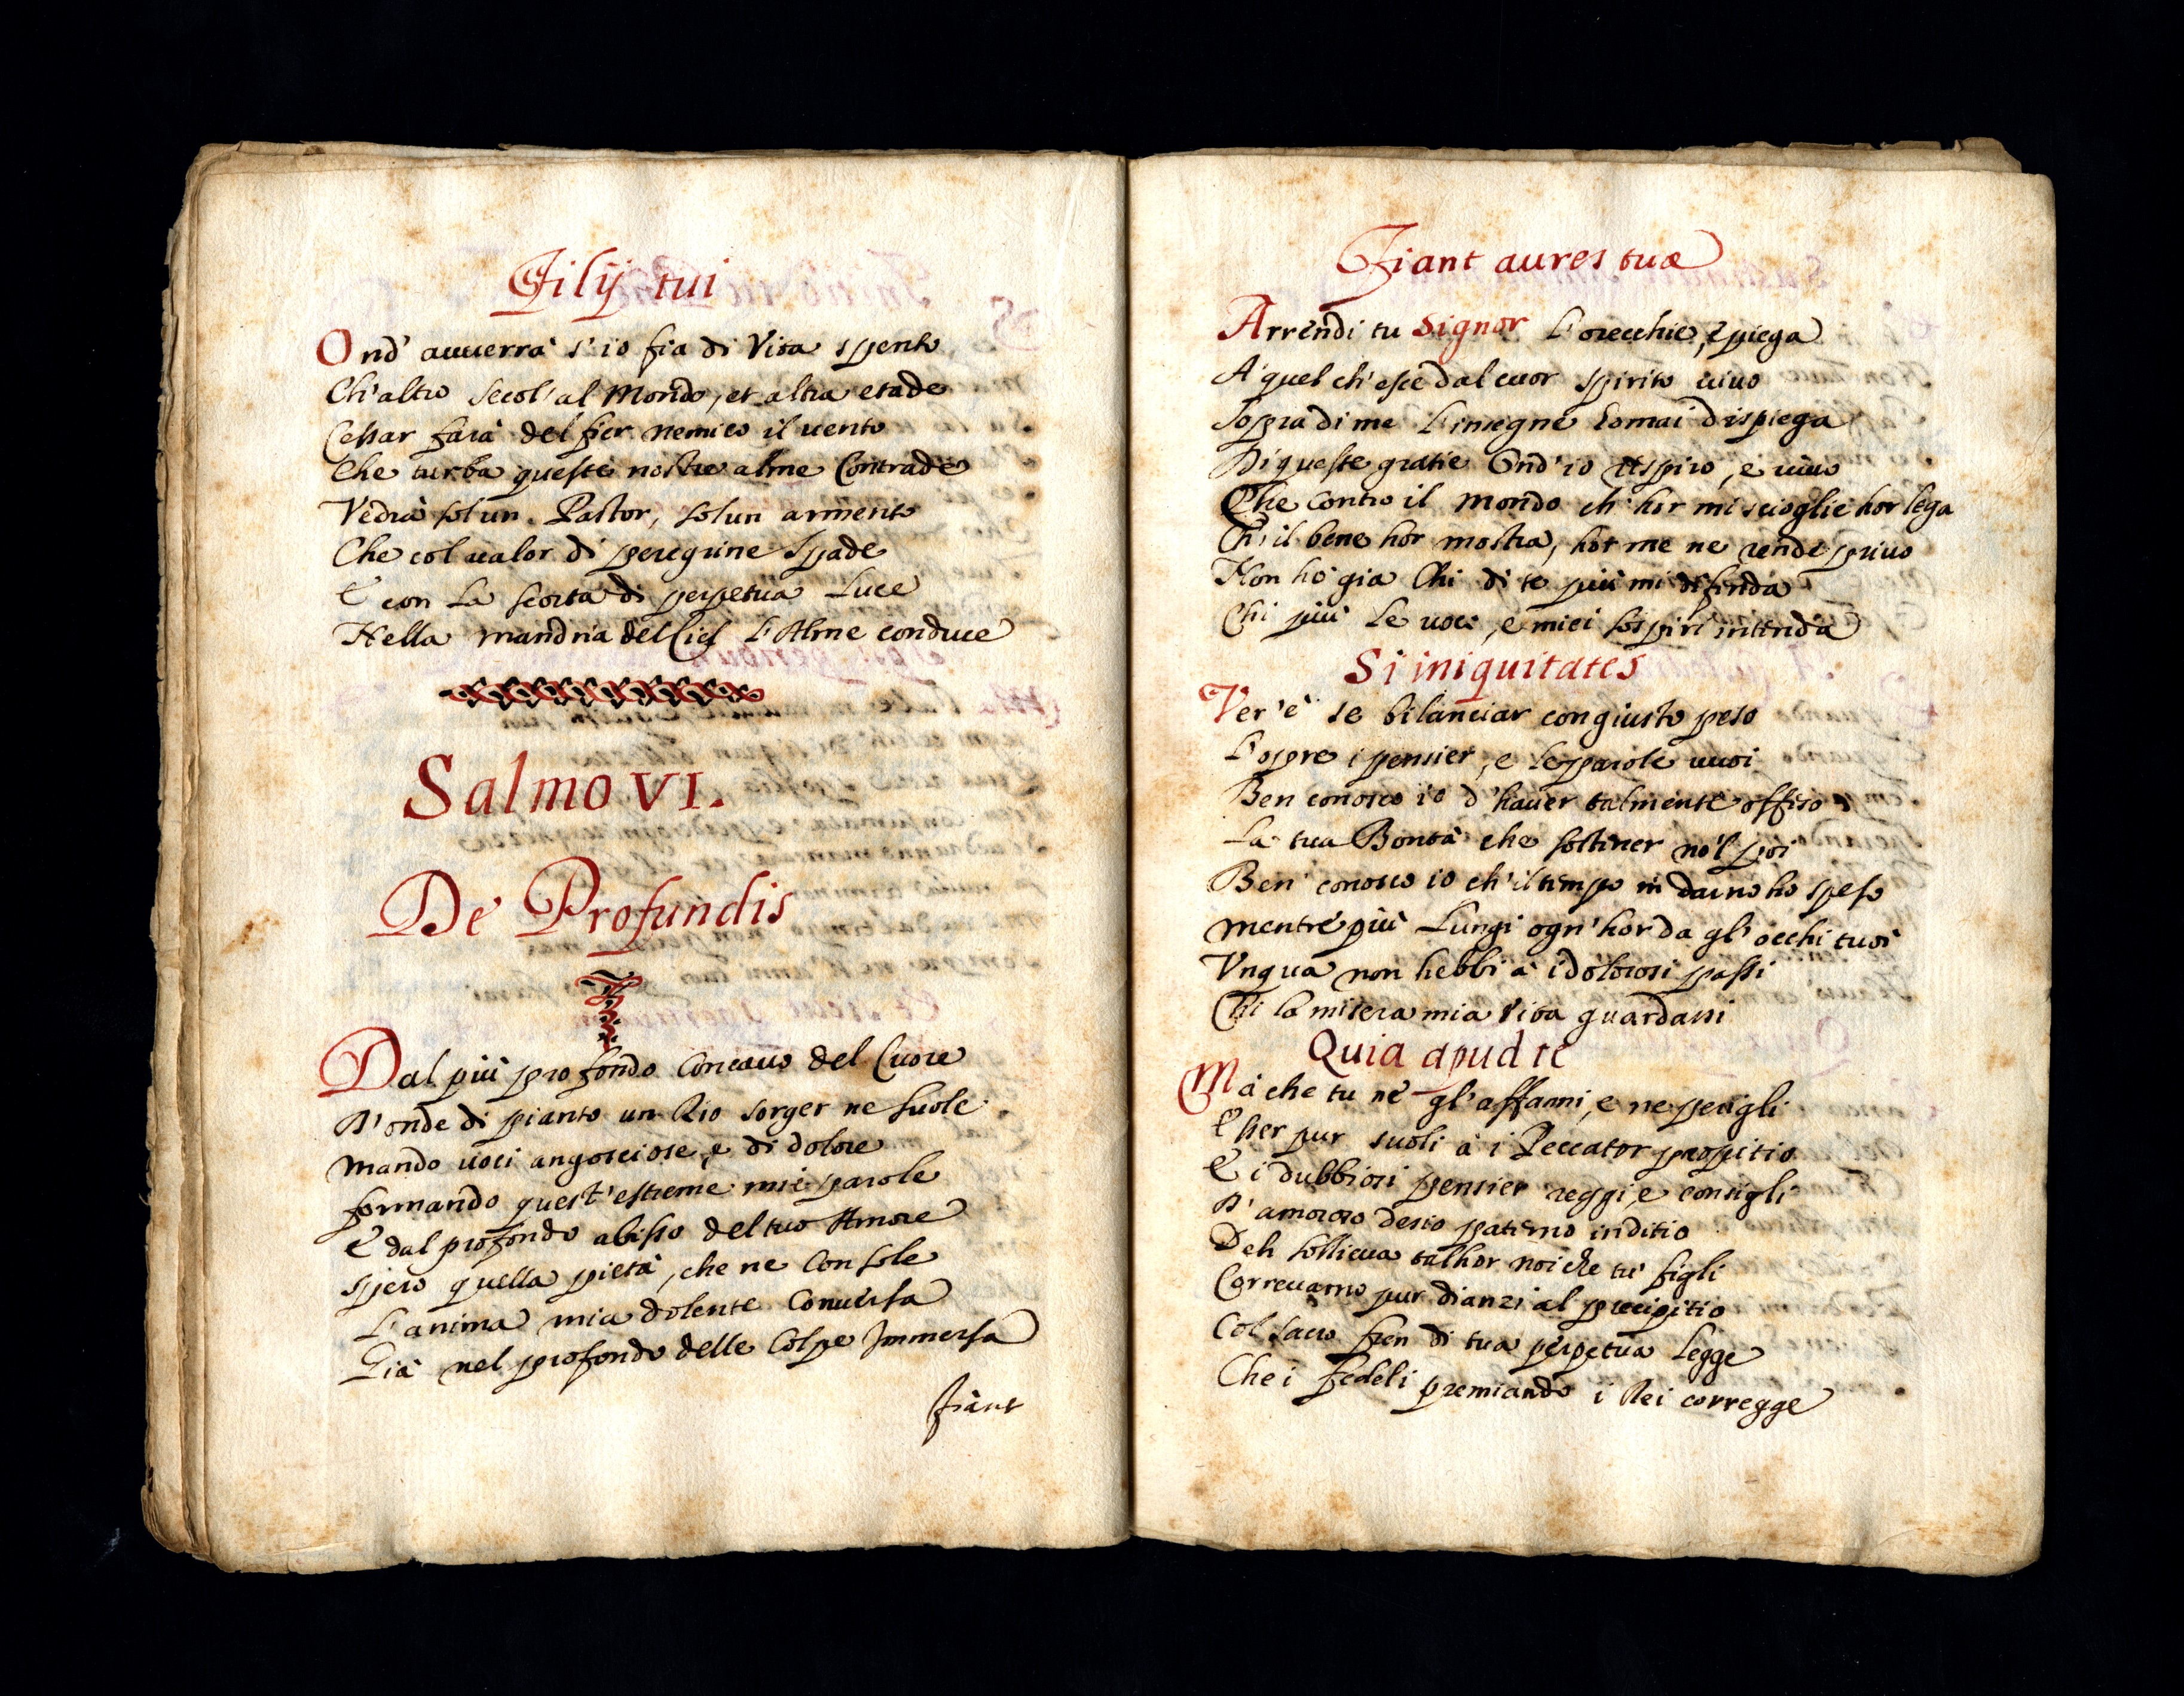 Filij tui
Ond' auuerra s'io fia di Vita spento
Ch'altro secol' al Mondo, et altra etade
Cessar fara del fier nemico il uento
Che turba queste nostre alme Contrade
Vedra sol un Pastor, sol un armento
Che col ualor di peregrine spade
E con La scorta di perpetua Luce
Nella mandria del Ciel L'Alme conduce
Salmo VI.
De Profundis
Dal più profondo Concauo del Cuore
D'onde di pianto un Rio sorger ne suole
Mando uoci angosciose, e di dolore
formando quest'estreme mie parole
E dal profondo abisso del tuo Amore
spero quella pietà, che ne Console
L'anima mia dolente Conuersa
Già nel profondo delle Colpe Immersa
fiant
Fiant aures tuæ
Arrendi tu Signor L'orecchie, e piega
A' quel ch'esce dal cuor spirito uiuo
Sopra di me L'insegne homai dispiega
Di queste gratie Ond'io respiro, e uiuo
Che contro il Mondo ch'hor mi scioglie hor lega
Ch'il bene hor mostra, hor me ne rende priuo
Non hò gia Chi di te più mi difenda
Chi più Le uoci, e miei sospiri intenda
Si iniquitates
Ver'è se bilanciar con giusto peso
L'opre i pensier, e Le parole uuoi
Ben conosco io d'hauer talmente offeso
La tua Bontà che sostener no'l poi
Ben conosco io ch'il tempo in darno ho speso
mentre più Lungi ogn'hor da gl'occhi tuoi
Vnqua non hebbi à i dolorosi passi
Chi la misera mia Vita guardassi
Quia apud te
Mà che tu ne gl'affanni, e ne perigli
Esser pur suoli à i Peccator propitio
E i dubbiosi pensier reggi, e consigli
D'amoroso desio paterno inditio
Deh sollieua talhor noi che tu' figli
Correuamo pur dianzi al precipitio
Col sacro fren di tua perpetua Legge
Che i fedeli premiando i Rei corregge